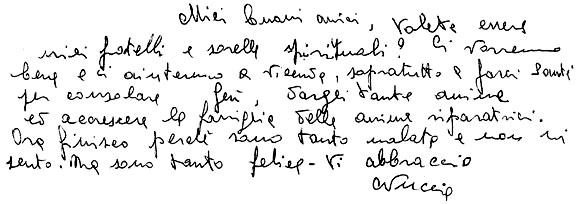 Miei buoni amici, volete essere
miei fratelli e sorelle spirituali? Ci vorremo
bene e ci aiuteremo a vicenda, sopratutto a farci santi
per consolare Gesù, dargli tante anime
ed accrescere la famiglia delle anime riparatrici.
Ora finisco perché sono tanto malata e non mi
sento. Ma sono tanto felice - Vi abbraccio